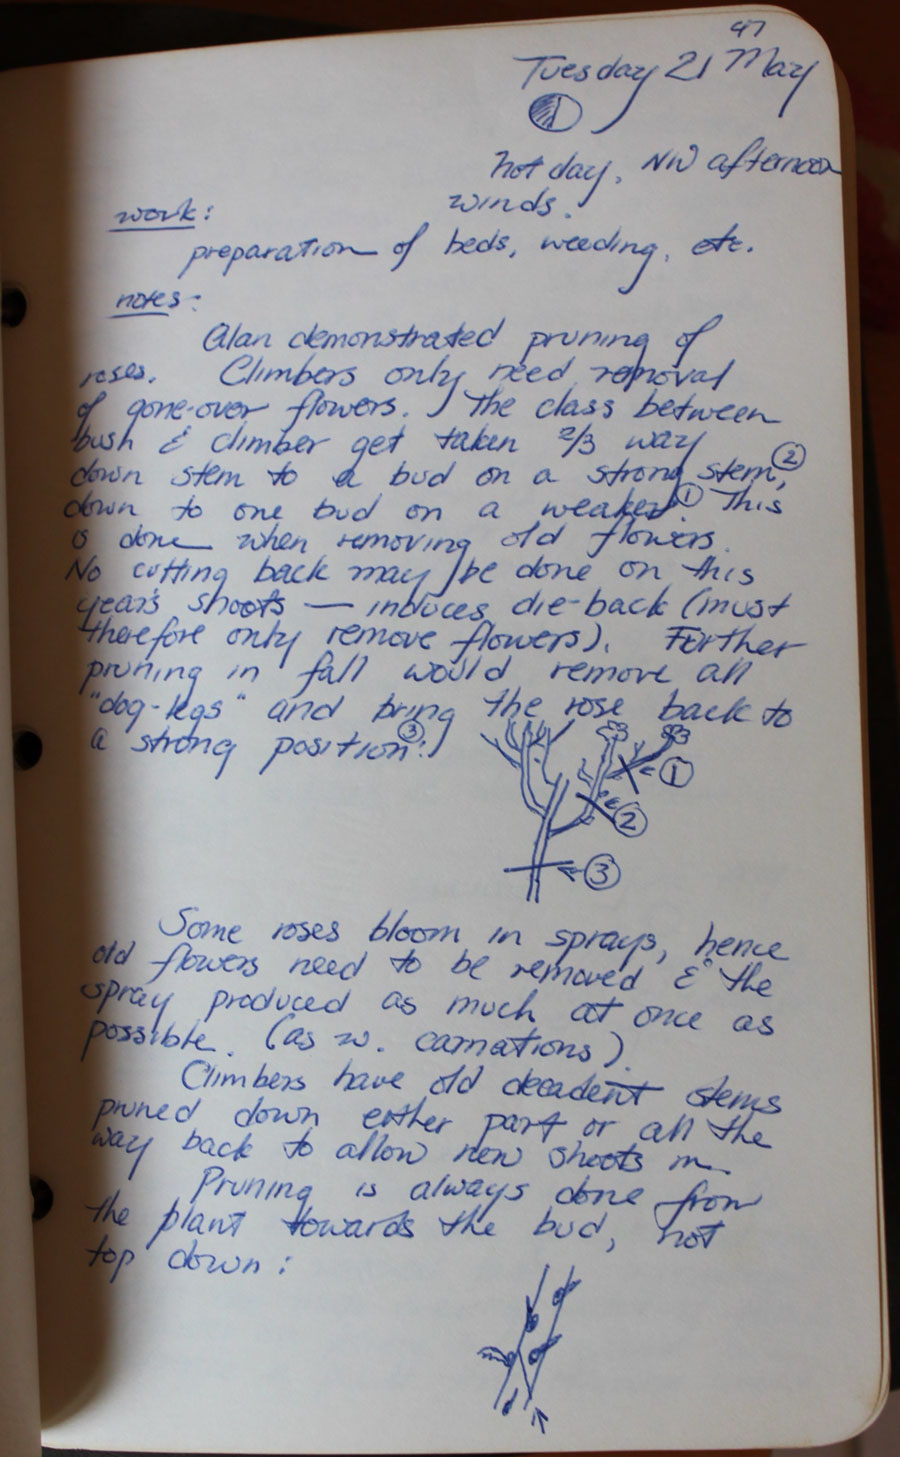 47
Tuesday 21 May
hot day, NW afternoon
winds.
work:
preparation of beds, weeding, etc.
notes:
Alan demonstrated pruning of
roses. Climbers only need removal
of gone-over flowers. The class between
bush & climber get taken 2/3 way
down stem to a bud on a strong stem②,
down to one bud on a weaker①. This
is done when removing old flowers.
No cutting back may be done on this
year's shoots — induces die-back (must
therefore only remove flowers). Further
pruning in fall would remove all
"dog-legs" and bring the rose back to
a strong position③:
①
②
③
Some roses bloom in sprays, hence
old flowers need to be removed & the
spray produced as much at once as
possible. (as w. carnations)
Climbers have old decadent stems
pruned down either part or all the
way back to allow new shoots in.
Pruning is always done from
the plant towards the bud, not
top down: